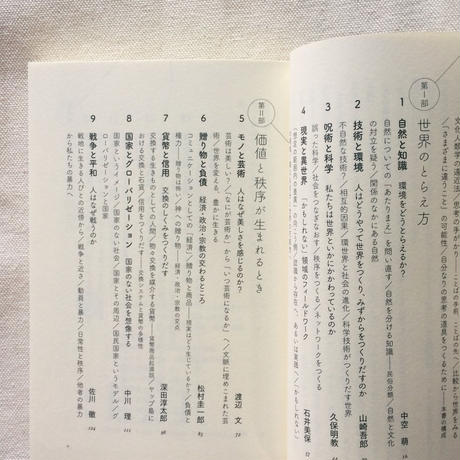 文化人類学の遠近法／思考の手がかり――ことばの手前、ことばの先へ／比較から世界を
「さまざまに違うこと」の可能性／自分なりの思考の道具をつくるために――本書の構成
第Ⅰ部 世界のとらえ方
1 自然と知識 環境をどうとらえるか? 中空 萌
自然についての「あたりまえ」を問い直す／自然を分ける知識――民俗分類／自然と文化
の対立を疑う／関係のなかにある自然
2 技術と環境 人はどうやって世界をつくり、みずからをつくりだすのか 山崎吾郎
不自然な技術?／相互的因果／環世界と社会の進化／科学技術がつくりだす世界
3 呪術と科学 私たちは世界といかにかかわっているのか 久保明教
誤った科学／社会をつなぎなおす／秩序をつくる／ネットワークをつくる
4 現実と異世界 「かもしれない」領域のフィールドワーク 石井美保
第Ⅱ部 価値と秩序が生まれるとき
5 モノと芸術 人はなぜ美しさを感じるのか? 渡辺 文
芸術は美しい?／「なにが芸術か」から「いつ芸術になるか」へ／文脈に埋めこまれた芸
術／世界を変える、豊かに生きる
6 贈り物と負債 経済・政治・宗教の交わるところ 松村圭一郎
コミュニケーションとしての「経済」／贈り物と商品――現実はどう生じているか?／負債と
権力――贈り物は怖い／神への贈り物――経済・政治・宗教の交点
7 貨幣と信用 交換のしくみをつくりだす 深田淳太郎
交換する生きものとしての人間／物々交換を媒介する貨幣――貨幣商品起源説／ヤップ島に
おける交換と石貨／信用をつくりだす――交換システムと貨幣の多様性
8 国家とグローバリゼーション 国家のない社会を想像する 中川 理
国家というイメージ／国家のない社会／国家とその周辺／国民国家というモデル／グ
ローバリゼーションと国家
9 戦争と平和 人はなぜ戦うのか 佐川 徹
戦地に生きる人びととの近傍から／戦争と近さ／動員と暴力／日常性と秩序／他者の暴力
から私たちの暴力へ